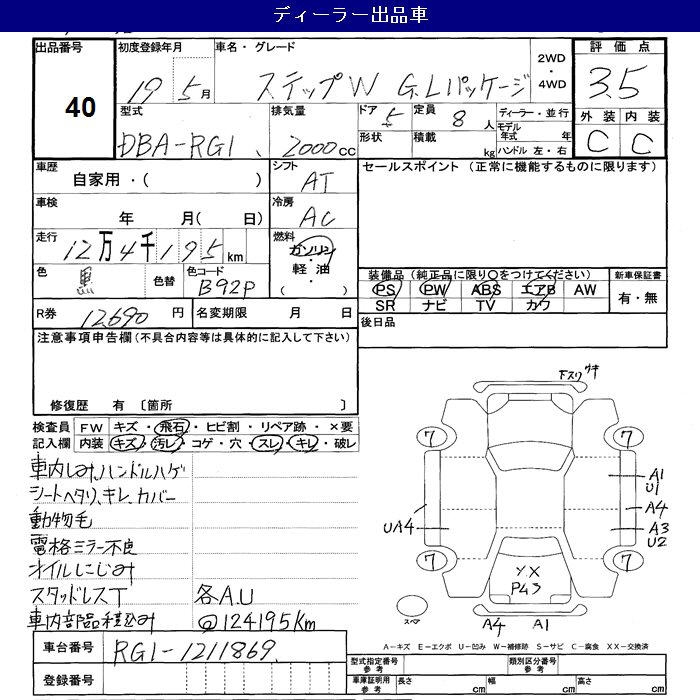 ディーラー出品車
出品番号 40
初度登録年月 19 5月
車名・グレード ステップW G.Lパッケージ
2WD・4WD
評価点 3.5
外装 C 内装 C
型式 DBA-RG1
排気量 2000cc
ドア 5 定員 8人
形状 積載 kg
ディーラー・並行
モデル年式 年
ハンドル 左・右
車歴 自家用・( )
シフト AT
セールスポイント (正常に機能するものに限ります)
車検 年 月( 日)
冷房 AC
走行 12万4千195km
燃料 ガソリン・軽油・( )
色 黒 色替 色コード B92P
装備品 (純正品に限り○をつけてください)
PS PW ABS エアB AW
SR ナビ TV カワ
新車保証書 有・無
R券 12690円 名変期限 月 日
後日品
注意事項申告欄 (不具合内容等は具体的に記入して下さい)
修復歴 有 〔箇所 〕
検査員記入欄 FW キズ・飛石・ヒビ割・リペア跡・×要
内装 キズ・汚レ・コゲ・穴・スレ・キレ・破レ
車内しみ、ハンドルハゲ
シートヘタリ、キレ、カバー
動物毛
電格ミラー不良
オイルにじみ
スタッドレスT 各A.U
車内部品積込み @124195Km
下スリ ウキ
7 7
A1
U1
A4
UA4 A3
U2
7 7
YX
P43
スペア A4 A1
A-キズ E-エクボ U-凹み W-補修跡 S-サビ C-腐食 XX-交換済
車台番号 RG1-1211869
登録番号
型式指定番号 参考 類別区分番号 参考
車庫証明用 参考 長さ cm 幅 cm 高さ cm